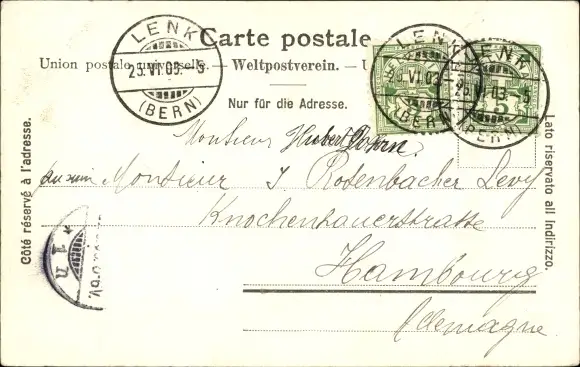 Carte postale
Union postale universelle. — Weltpostverein. — U
Nur für die Adresse.
Côté réservé à l'adresse.
Lato riservato all indirizzo.
LENK
25.VI.03.-5
(BERN)
LENK
25.VI.03
(BERN)
LENK
25.VI.03.-5
(BERN)
5
Monsieur Hubert
Monsieur J Rosenbacher Levy
Knochenhauerstrasse
Hambourg
Allemagne
* 1 n